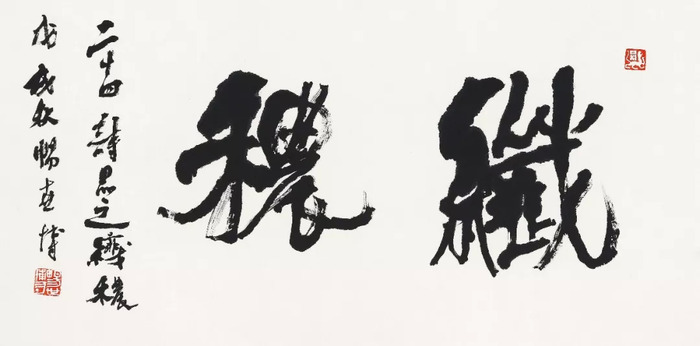 纖穠
二十四詩品之纖穠
戊戌秋